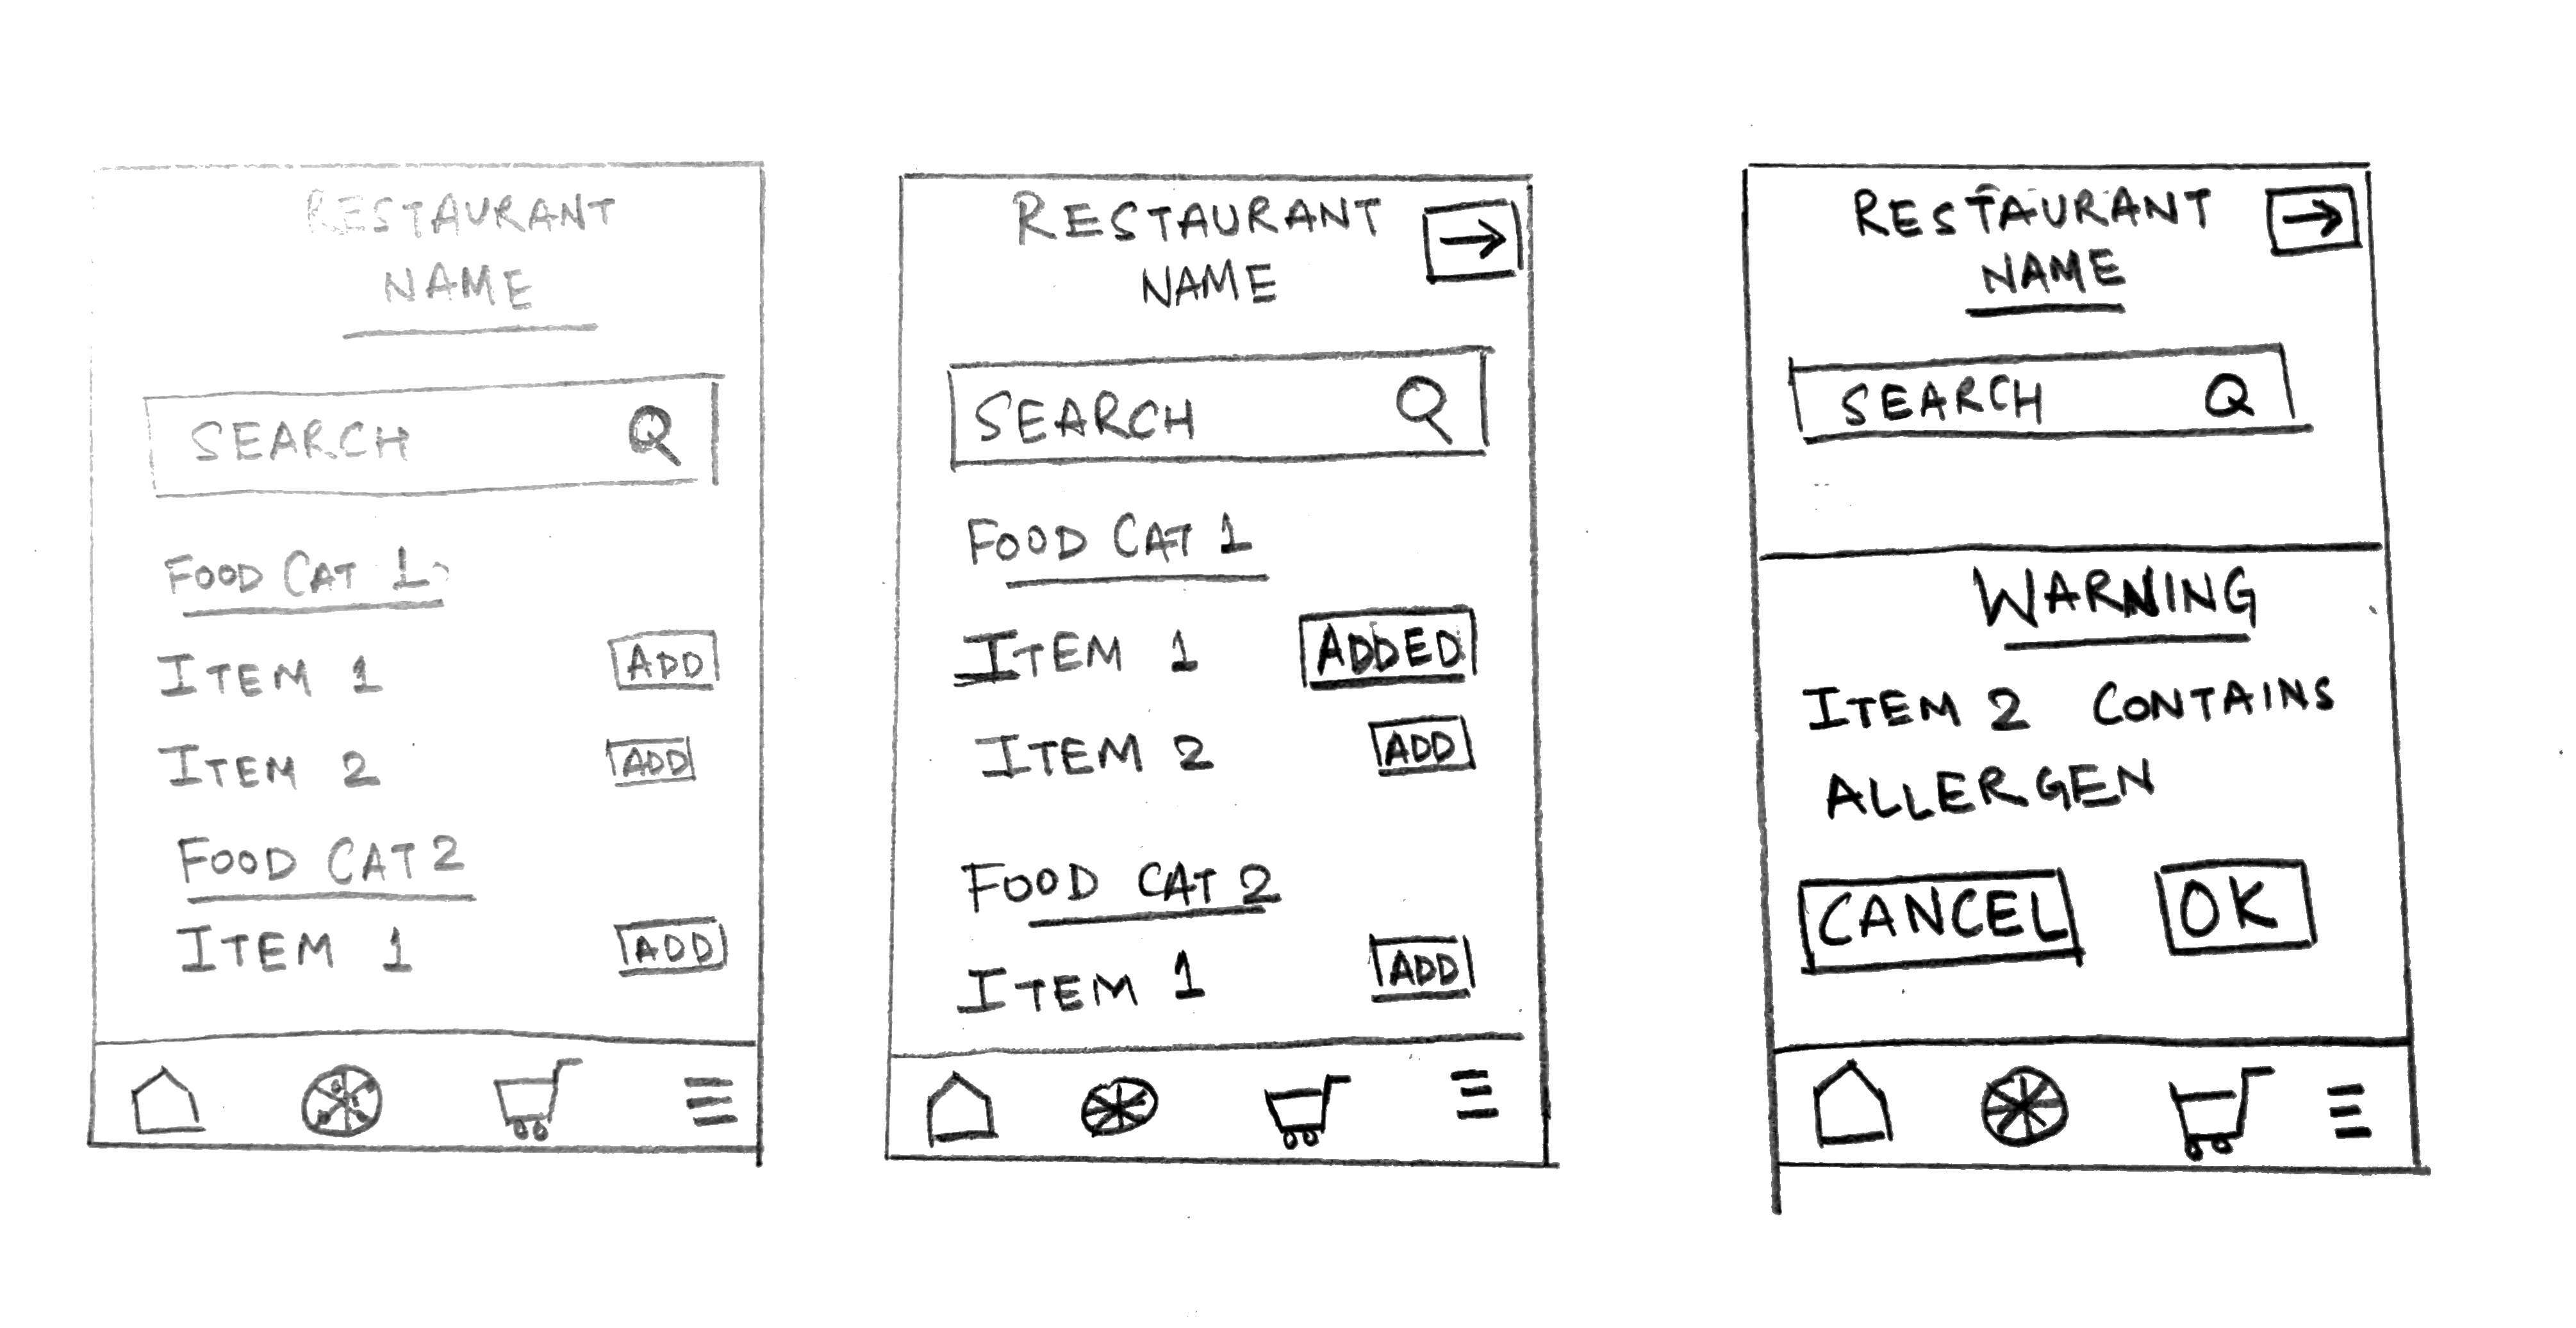 RESTAURANT
NAME
SEARCH
FOOD CAT 1
ITEM 1 ADD
ITEM 2 ADD
FOOD CAT 2
ITEM 1 ADD
RESTAURANT
NAME
SEARCH
FOOD CAT 1
ITEM 1 ADDED
ITEM 2 ADD
FOOD CAT 2
ITEM 1 ADD
RESTAURANT
NAME
SEARCH
WARNING
ITEM 2 CONTAINS
ALLERGEN
CANCEL OK